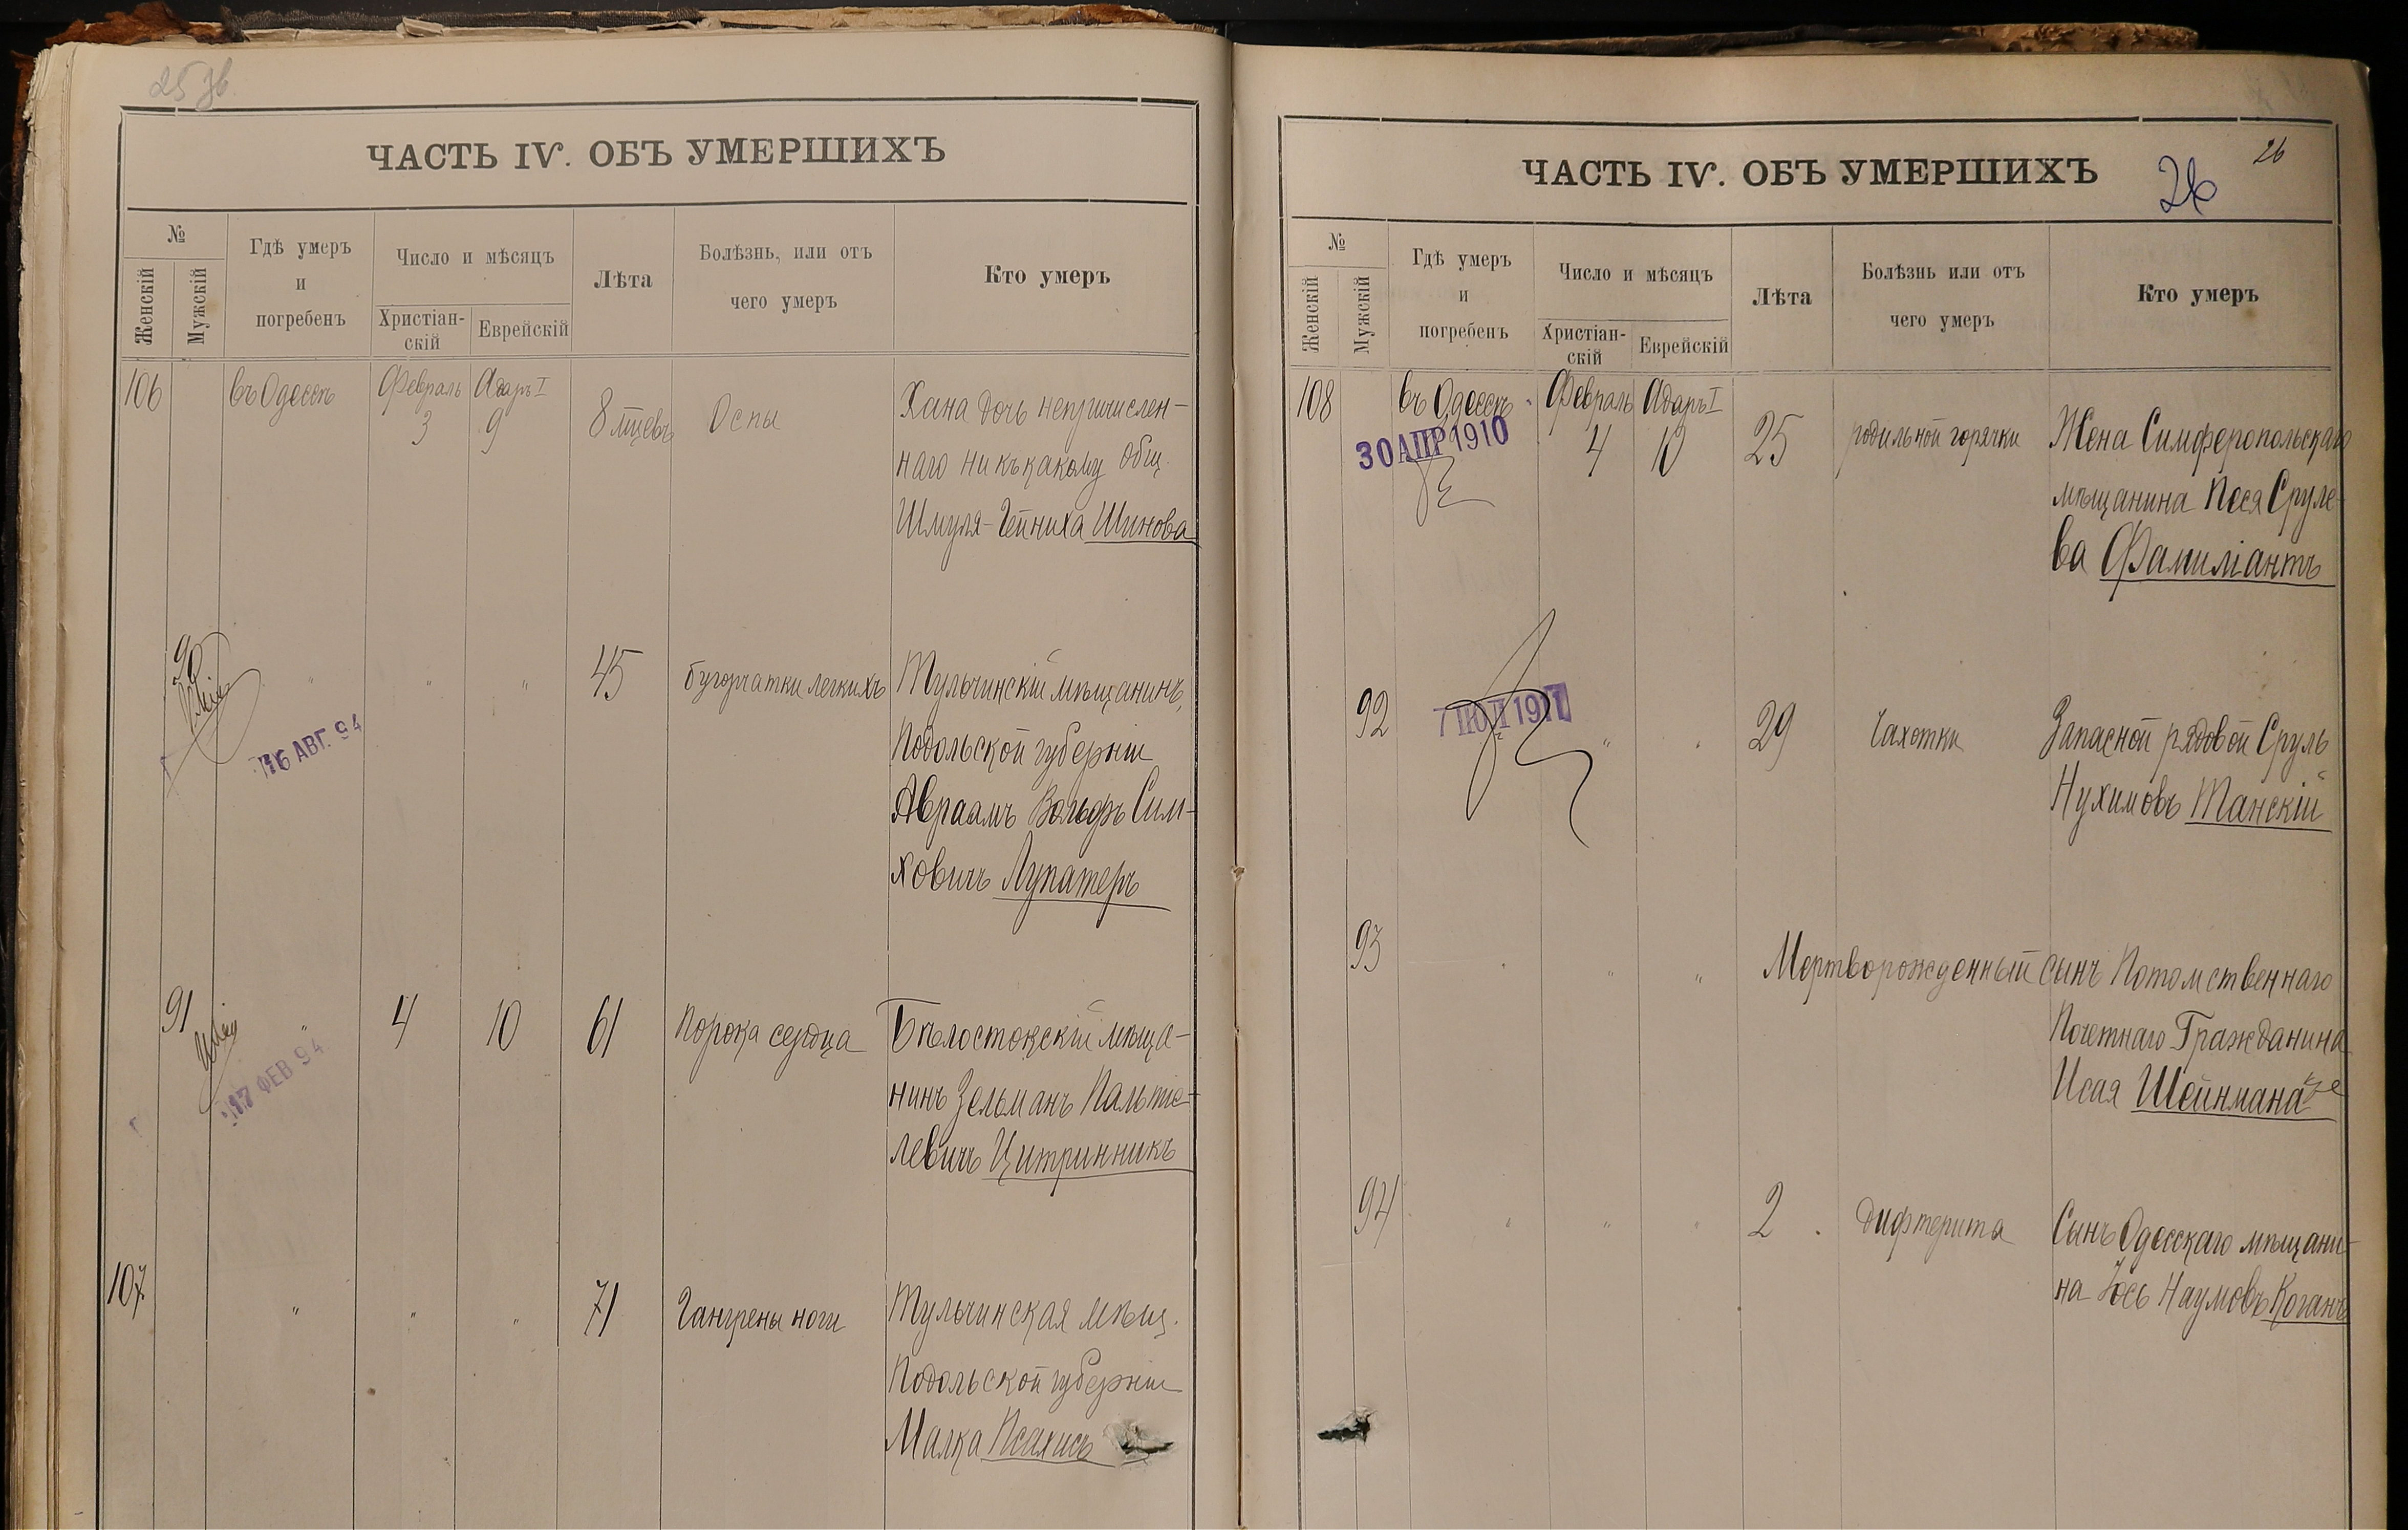 25 об
ЧАСТЬ IV. ОБЪ УМЕРШИХЪ
№
Женскій
Мужскій
Гдѣ умеръ
и
погребенъ
Число и мѣсяцъ
Христіан-
скій
Еврейскій
Лѣта
Болѣзнь, или отъ
чего умеръ
Кто умеръ
106
въ Одессѣ
Февраль
3
Адаръ I
9
8 мцевъ
Оспы
Хана дочь непричислен-
наго ни къ какому общ.
Шмуля-Гейниха Шинова
90
"
"
"
45
бугорчатки легкихъ
Тульчинскій мѣщанинъ,
Подольской губерніи
Авраамъ Вольфъ Сим-
ховичъ Лупатеръ
16 АВГ. 94
91
"
4
10
61
Порока сердца
Бѣлостокскій мѣща-
нинъ Зельманъ Пальтіе-
левичъ Цитринникъ
17 ФЕВ 94
107
"
"
"
71
Гангрены ноги
Тульчинская мѣщ.
Подольской губерніи
Малка Псахисъ
26
26
ЧАСТЬ IV. ОБЪ УМЕРШИХЪ
№
Женскій
Мужскій
Гдѣ умеръ
и
погребенъ
Число и мѣсяцъ
Христіан-
скій
Еврейскій
Лѣта
Болѣзнь или отъ
чего умеръ
Кто умеръ
108
въ Одессѣ
30 АПР 1910
Февраль
4
Адаръ I
10
25
родильной горячки
Жена Симферопольскаго
мѣщанина Песя Сруле-
ва Фамиліантъ
92
"
"
29
Чахотки
Запасной рядовой Сруль
Нухимовъ Танскій
93
"
"
Мертворожденный сынъ Потомственнаго
Почетнаго Гражданина
Исая Шейнмана
94
"
"
"
2
Дифтерита
Сынъ Одесскаго мѣщани-
на Іось Наумовъ Коганъ